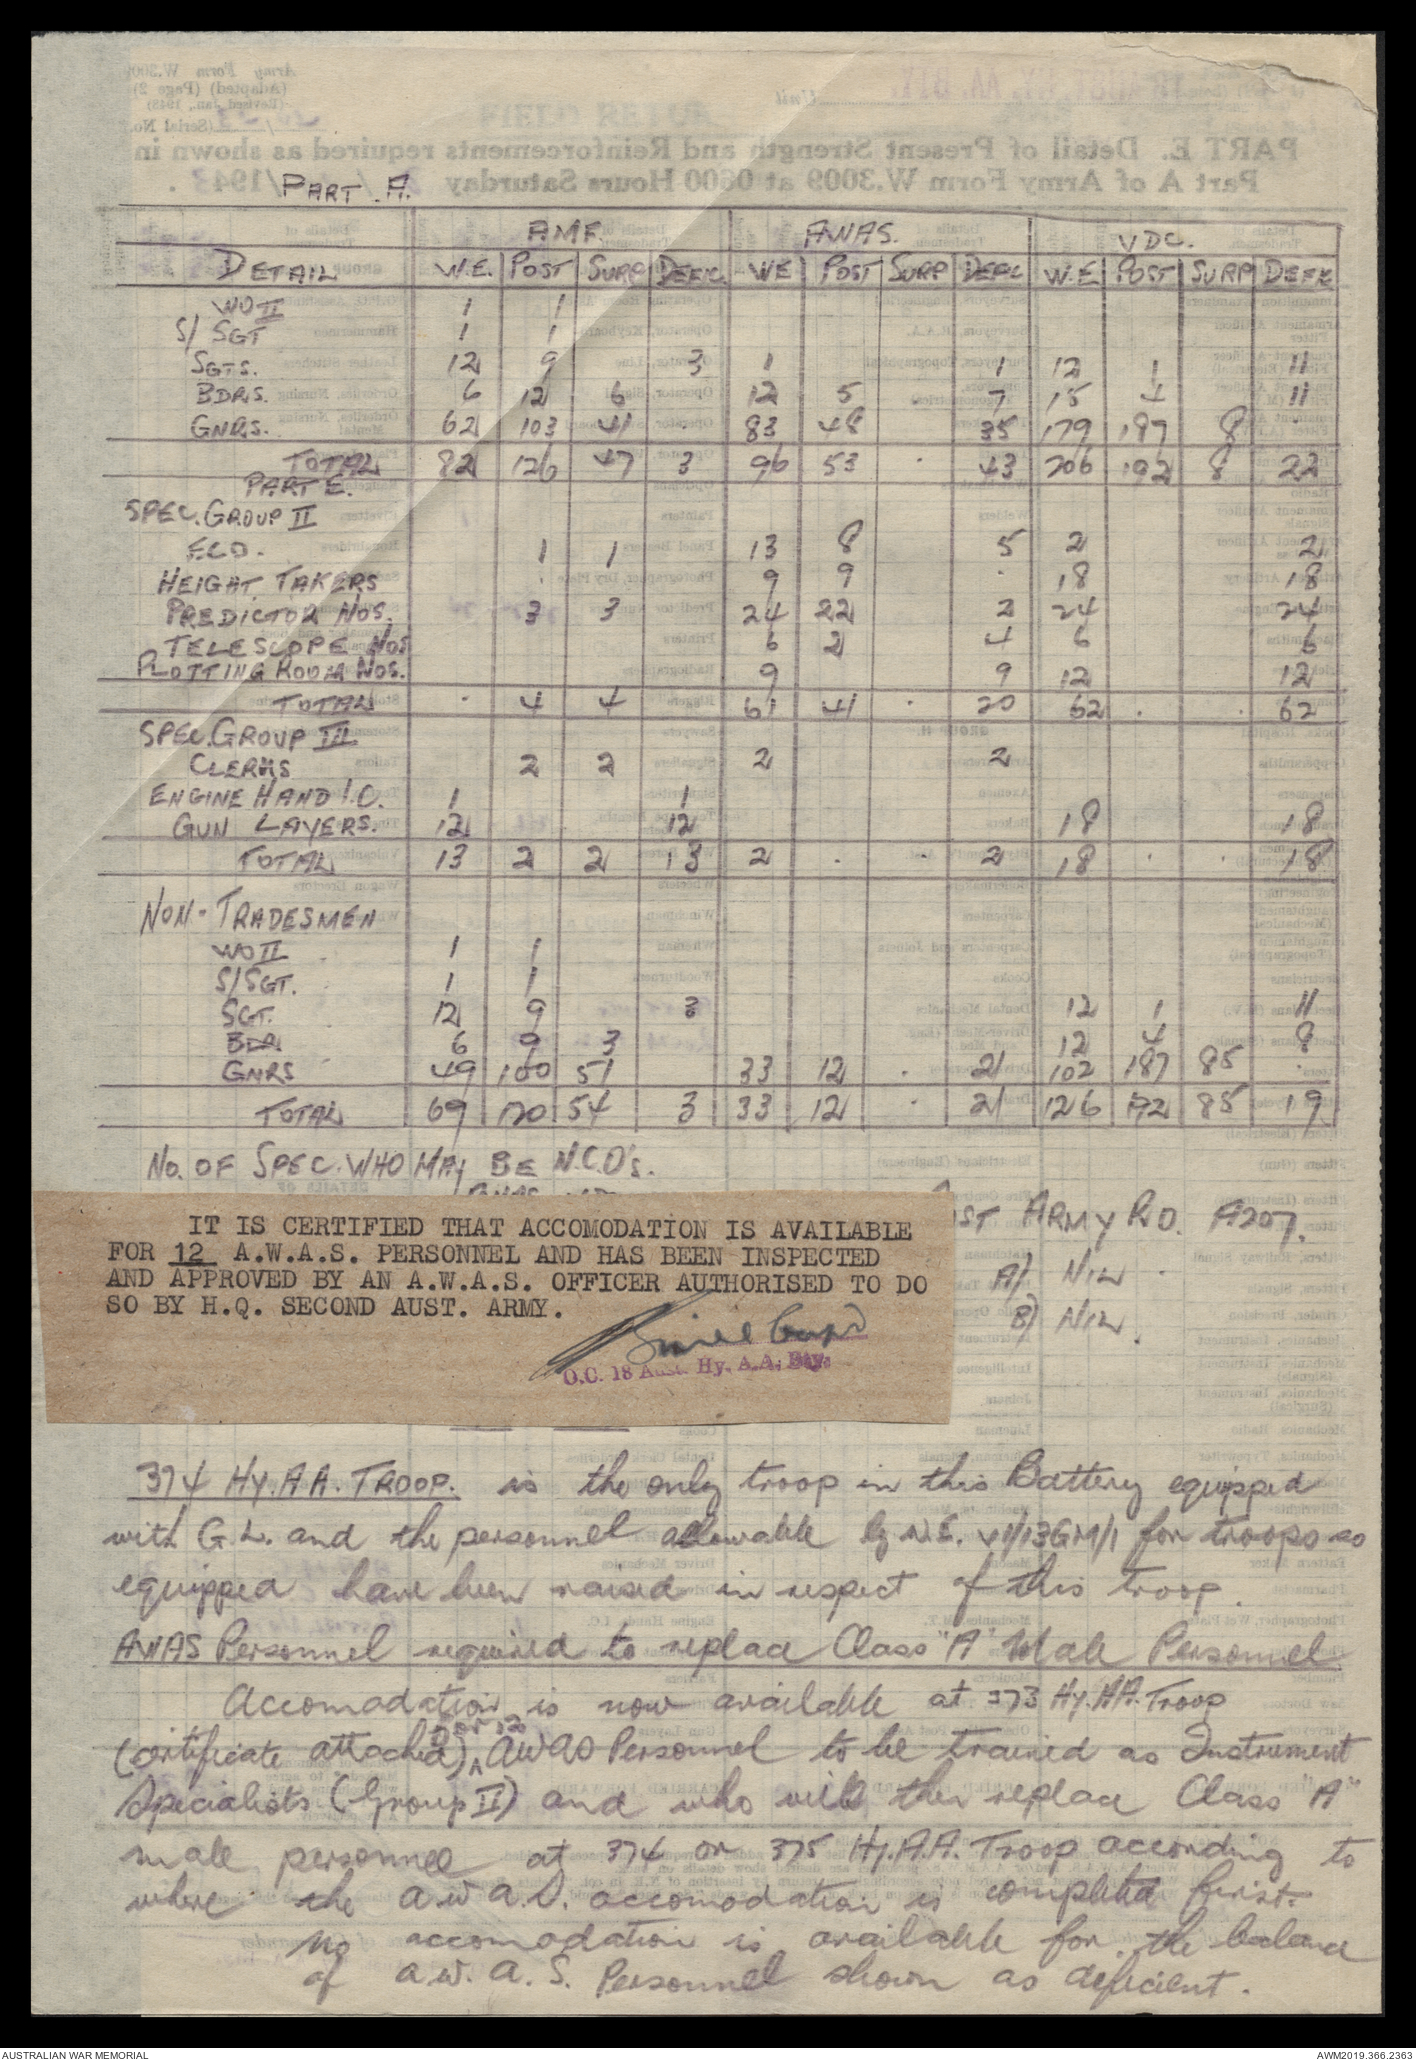 PART A.
AMF. AWAS. VDC.
DETAIL W.E. POST SURP DEFIC. WE POST SURP DEFC W.E POST SURP DEFIC
WO II 1 1
S/SGT 1 1
SGTS. 12 9 3 1 1 12 1 11
BDRS. 6 12 6 12 5 7 15 4 11
GNRS. 62 103 41 83 48 35 179 187 8 .
TOTAL 82 126 47 3 96 53 . 43 206 192 8 22
PART E.
SPEC. GROUP II
F.C.O. 1 1 13 8 5 2 2
HEIGHT TAKERS 9 9 . 18 18
PREDICTOR NOS. 3 3 24 22 2 24 24
TELESCOPE NOS 6 2 4 6 6
PLOTTING ROOM NOS. 9 9 12 12
TOTAL . 4 4 61 41 . 20 62 . . 62
SPEC. GROUP III
CLERKS 2 2 2 2
ENGINE HAND I.C. 1 1
GUN LAYERS. 12 12 18 18
TOTAL 13 2 2 13 2 . . 2 18 . . 18
NON-TRADESMEN
WO II 1 1
S/SGT. 1 1
SGT. 12 9 3 12 1 11
BDR 6 9 3 12 4 8
GNRS 49 100 51 33 12 . 21 102 187 85 .
TOTAL 69 120 54 3 33 12 . 21 126 192 85 19
NO. OF SPEC. WHO MAY BE N.C.O's.
ARMY R.O. A207.
A) NIL.
B) NIL.
IT IS CERTIFIED THAT ACCOMODATION IS AVAILABLE
FOR 12 A.W.A.S. PERSONNEL AND HAS BEEN INSPECTED
AND APPROVED BY AN A.W.A.S. OFFICER AUTHORISED TO DO
SO BY H.Q. SECOND AUST. ARMY.
O.C. 18 Aust. Hy. A.A. Bty.
374 HY. A A. TROOP. is the only troop in this Battery equipped
with G.L. and the personnel allowable by W.E. VI/13GM/1 for troops so
equipped have been raised in respect of this troop.
AWAS Personnel required to replace Class "A" Male Personnel
Accomodation is now available at 373 Hy. AA. Troop
(certificate attached) for 12 AWAS Personnel to be trained as Instrument
Specialists (Group II) and who will then replace Class "A"
male personnel at 374 or 375 Hy. A.A. Troop according to
where the A.W.A.S. accomodation is completed first.
No accomodation is available for the balance
of A.W.A.S. Personnel shown as deficient.
AUSTRALIAN WAR MEMORIAL
AWM2019.366.2363